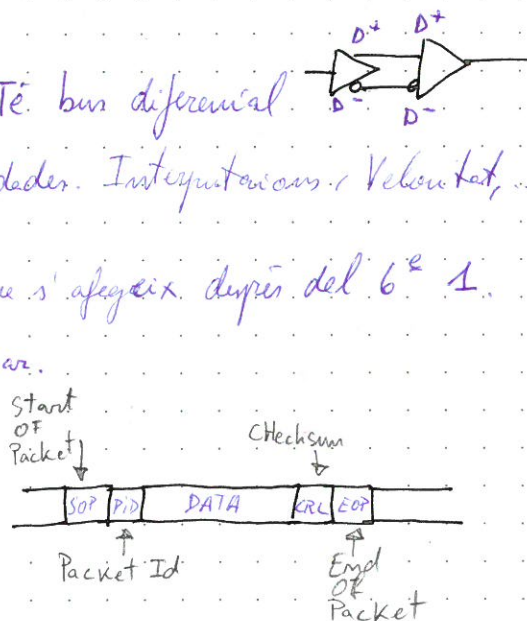 D+ D+
Té bus diferencial
D- D-
dades. Interrupcions, Velocitat,
s'afegeix després del 6è 1.
Start
OF
Packet
CHecksum
SOP PiD DATA CRC EOP
Packet Id
End
OF
Packet